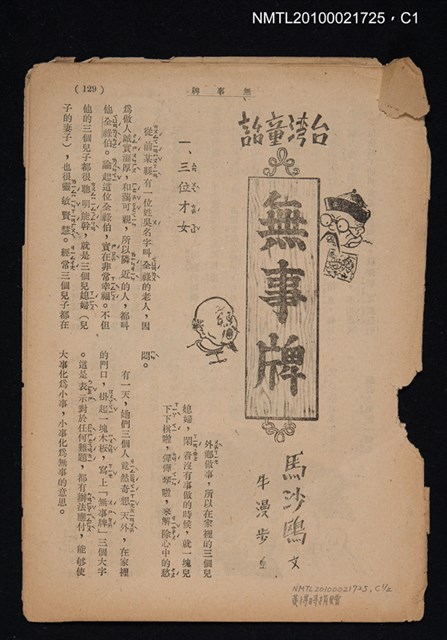 NMTL20100021725，C1
無事牌
(129)
台灣童話
無事牌
馬沙鷗 文
牛漫步
一、三位才女
從前某縣有一位姓吳名字叫全祿的老人，因
為做人誠實溫厚，和藹可親，所以隣近的人，都叫
他全祿伯。論起這位全祿伯，實在非常幸福。不但
他的三個兒子都很聰明能幹，就是三個兒媳婦（兒
子的妻子），也很靈敏賢慧。經常三個兒子都在
外鄉做事，所以在家裡的三個兒
媳婦，閑着沒有事做的時候，就一塊兒
下下棋啦，彈彈琴啦，來解除心中的愁
悶。
有一天，她們三個人竟然奇想天外，在家裡
的門口，掛起一塊木板，寫上「無事牌」三個大字
。這是表示對於任何難題，都有辦法應付，能够使
大事化為小事，小事化為無事的意思。
NMTL20100021725, C1/2